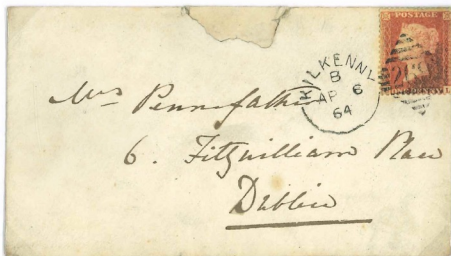 POSTAGE
KILKENNY
B
AP 6
64
Mrs Pennefather
6. Fitzwilliam Place
Dublin